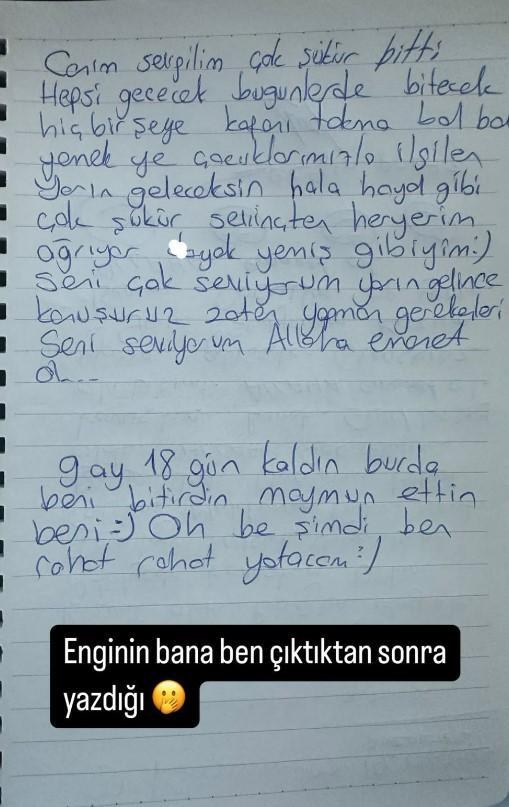 Canım sevgilim çok şükür bitti
Hepsi geçecek bugunlerde bitecek
hiçbirşeye kafanı takma bol bo
yemek ye çocuklarımızla ilgilen
Yarın geleceksin hala hayal gibi
çok şükür sevinçten heryerim
ağrıyor dayak yemiş gibiyim:)
Seni çok seviyorum yarın gelince
konuşuruz zaten yapman gerekenleri
Seni seviyorum Allaha emanet
ol...
9 ay 18 gün kaldın burda
beni bitirdin maymun ettin
beni=) Oh be şimdi ben
rahat rahat yatacam:)
Enginin bana ben çıktıktan sonra
yazdığı 🤭